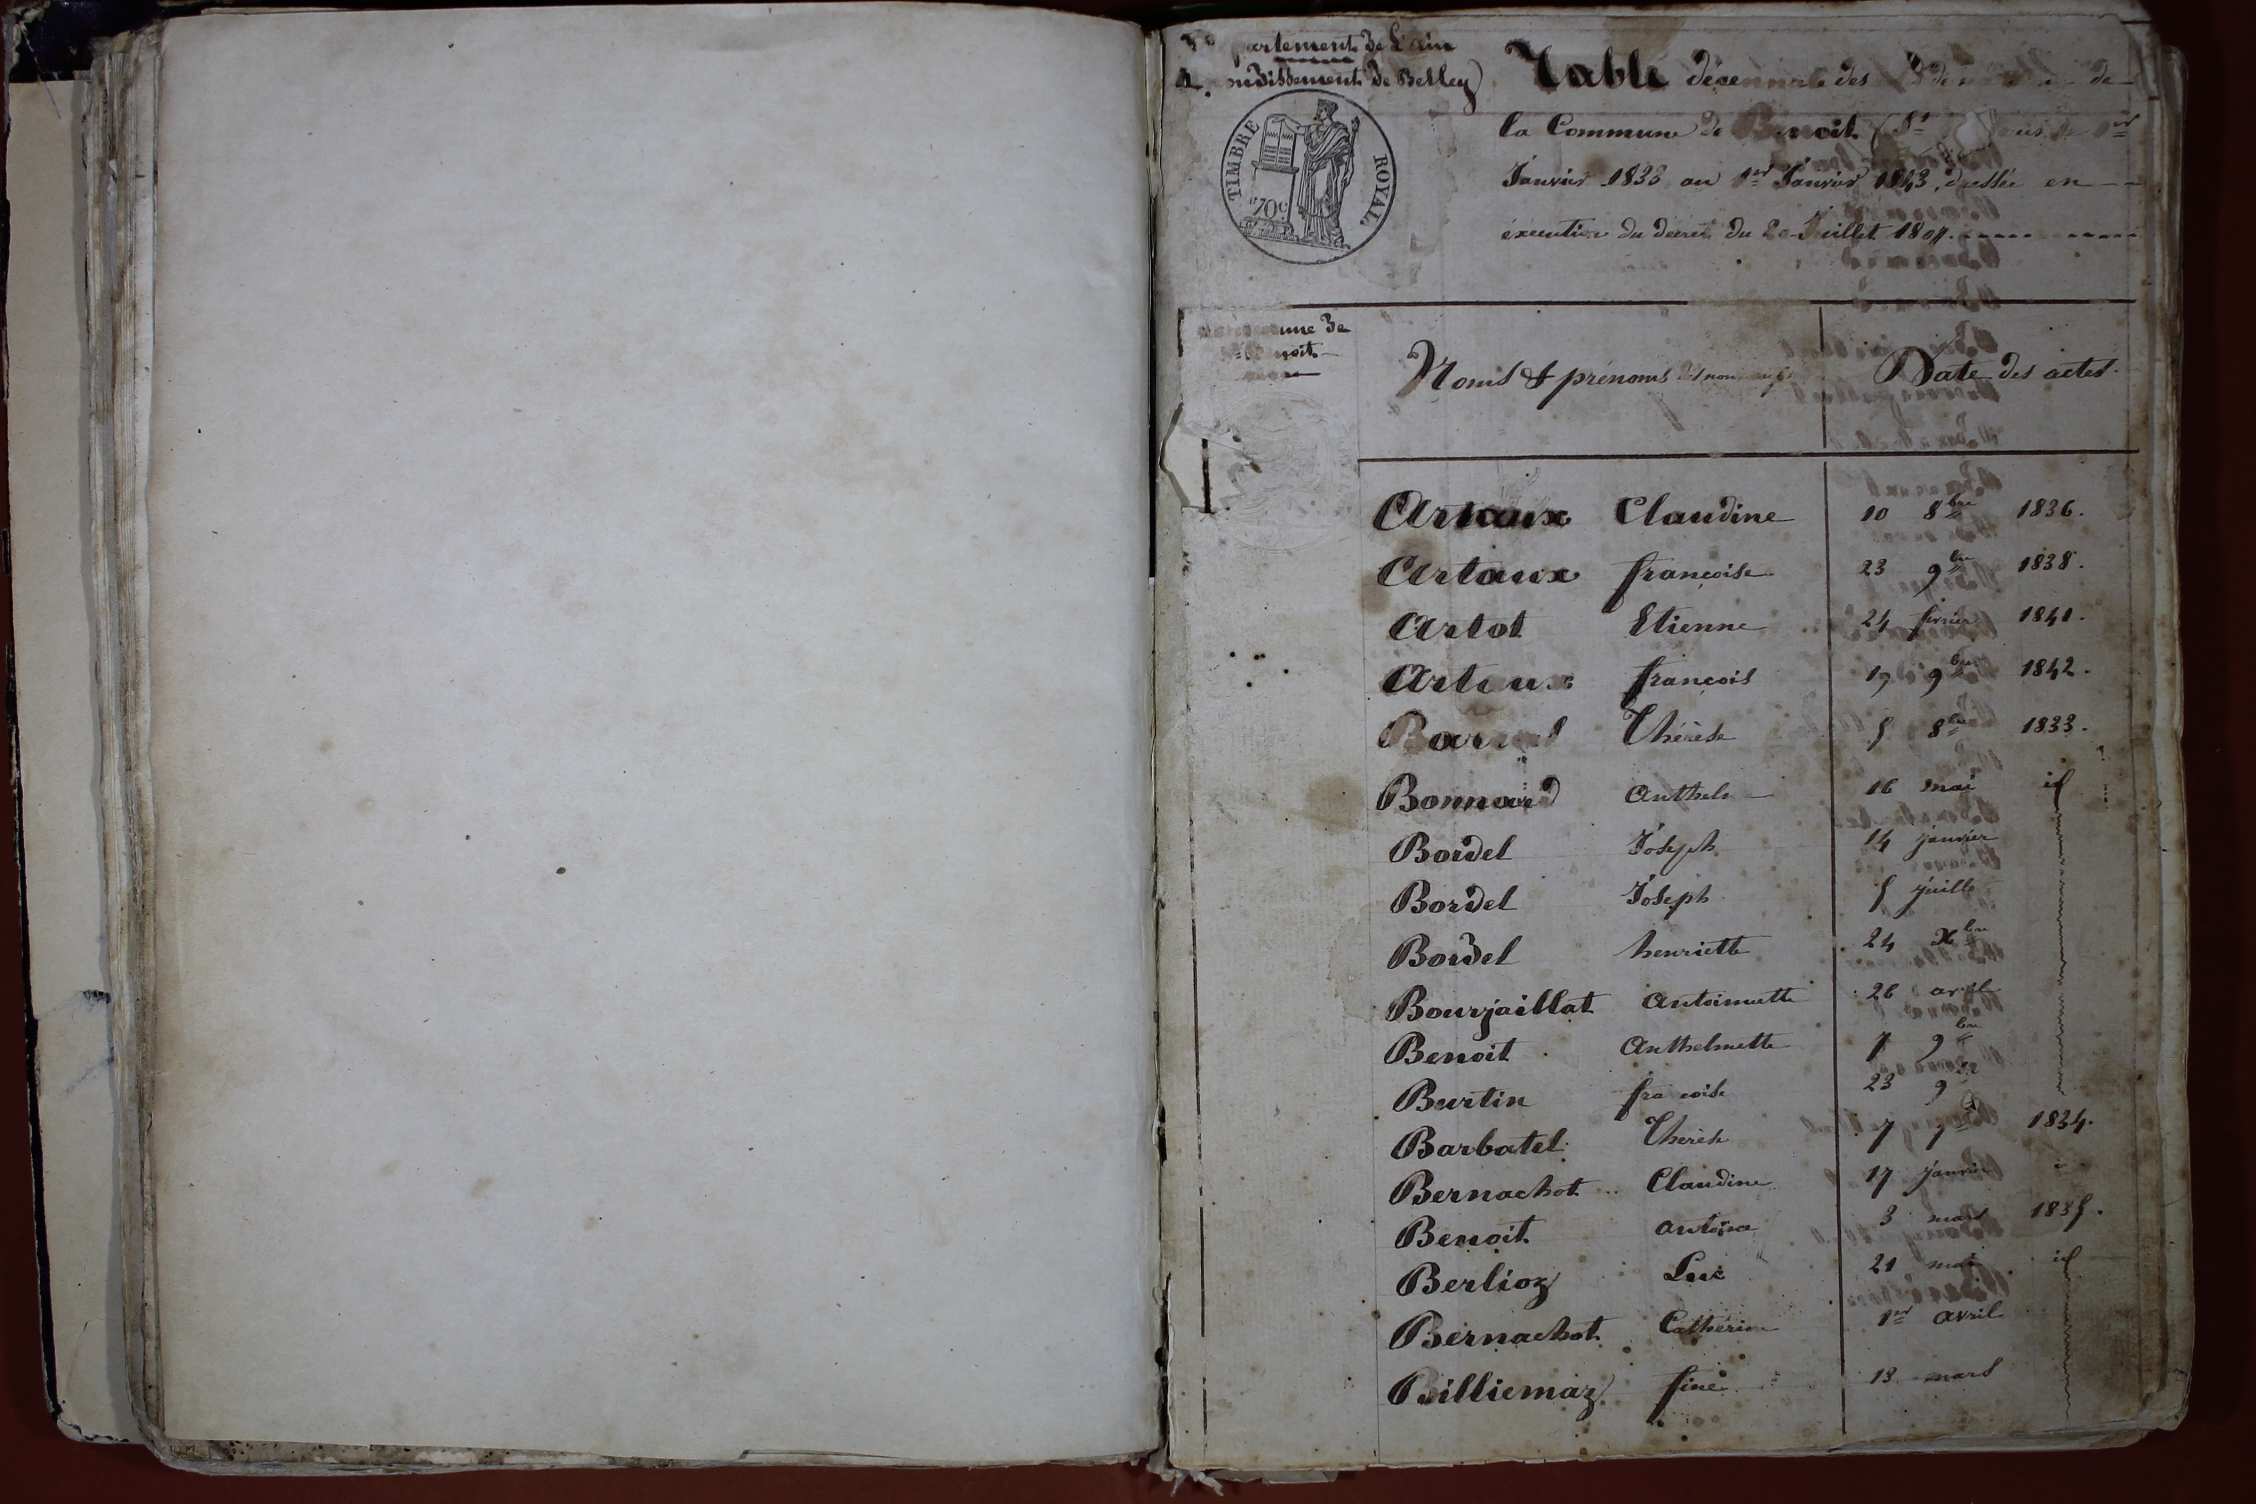 Département de L'ain
Arrondissement de Belley
Table décennale des de
la Commune de Benoit (St) 1er
Janvier 1833 au 1er Janvier 1843, dressée en
éxécution du décret du 20 Juillet 1807.
TIMBRE ROYAL
70c
Commune de
St Benoit
Noms & prénoms des
Date des actes.
Artaux Claudine 10 8bre 1836.
Artaux françoise 23 9bre 1838.
Artot Etienne 24 février 1841.
Artaux françois 19 9bre 1842.
Thérèse 5 8bre 1833.
Bonnard Anthelme 16 mai id
Bordel Joseph 14 janvier
Bordel Joseph 5 juillet
Bordel henriette 24 Xbre
Bourjaillat Antoinette 26 avril
Benoit Anthelmette 7 9bre
Burtin françoise 23 9bre
Barbatel Thérèse 7 1834.
Bernachot Claudine 17 janvier
Benoit antoine 3 mars 1835.
Berlioz Luc 21 mai id
Bernachot Cathérine 1er avril
Billiemaz fine 13 mars